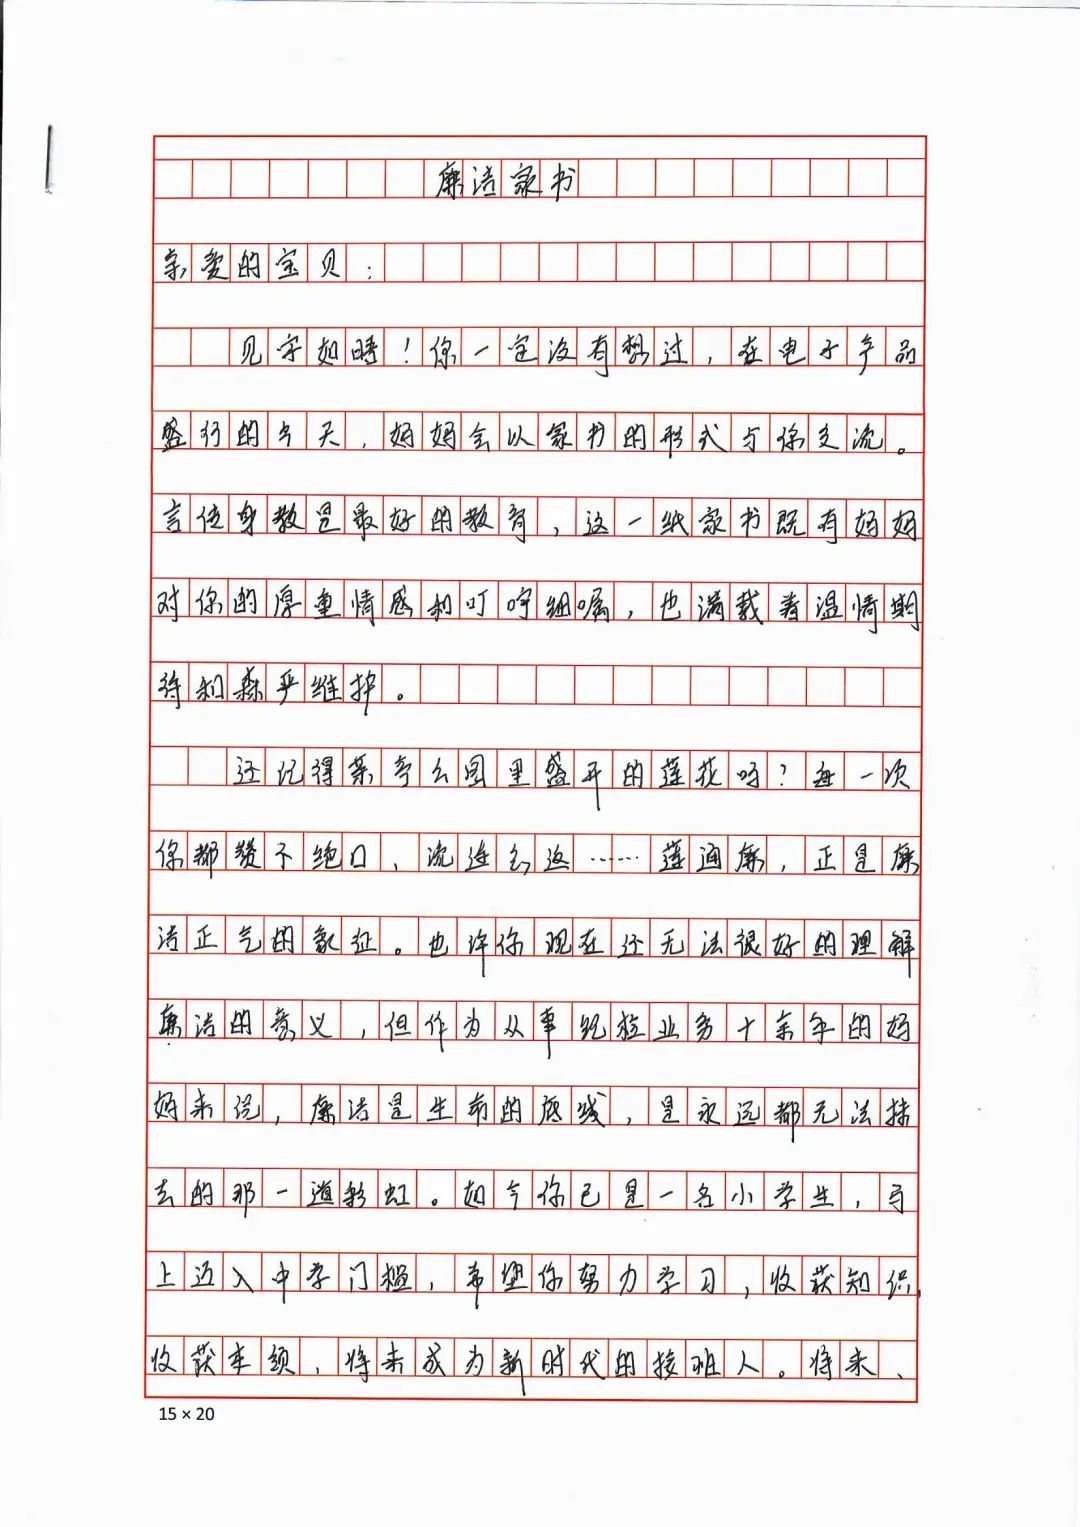 廉洁家书
亲爱的宝贝：
见字如晤！你一定没有想过，在电子产品
盛行的今天，妈妈会以家书的形式与你交流。
言传身教是最好的教育，这一纸家书既有妈妈
对你的厚重情感和叮咛细嘱，也满载着温情期
待和森严维护。
还记得菜亭公园里盛开的莲花吗？每一次
你都赞不绝口、流连忘返……莲通廉，正是廉
洁正气的象征。也许你现在还无法很好的理解
廉洁的意义，但作为从事纪检业务十余年的妈
妈来说，廉洁是生命的底线，是永远都无法抹
去的那一道彩虹。如今你已是一名小学生，马
上迈入中学门槛，希望你努力学习，收获知识，
收获车领，将来成为新时代的接班人。将来、
15×20